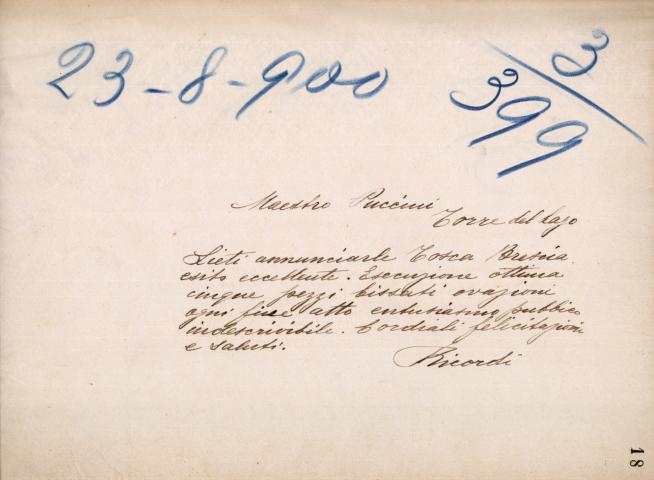 23-8-900
3/399
Maestro Puccini
Torre del Lago
Lieti annunciarle Tosca Brescia
esito eccellente. Esecuzione ottima
cinque pezzi bissati ovazioni
ogni fine atto entusiasmo pubblico
indescrivibile. Cordiali felicitazioni
e saluti.
Ricordi
18